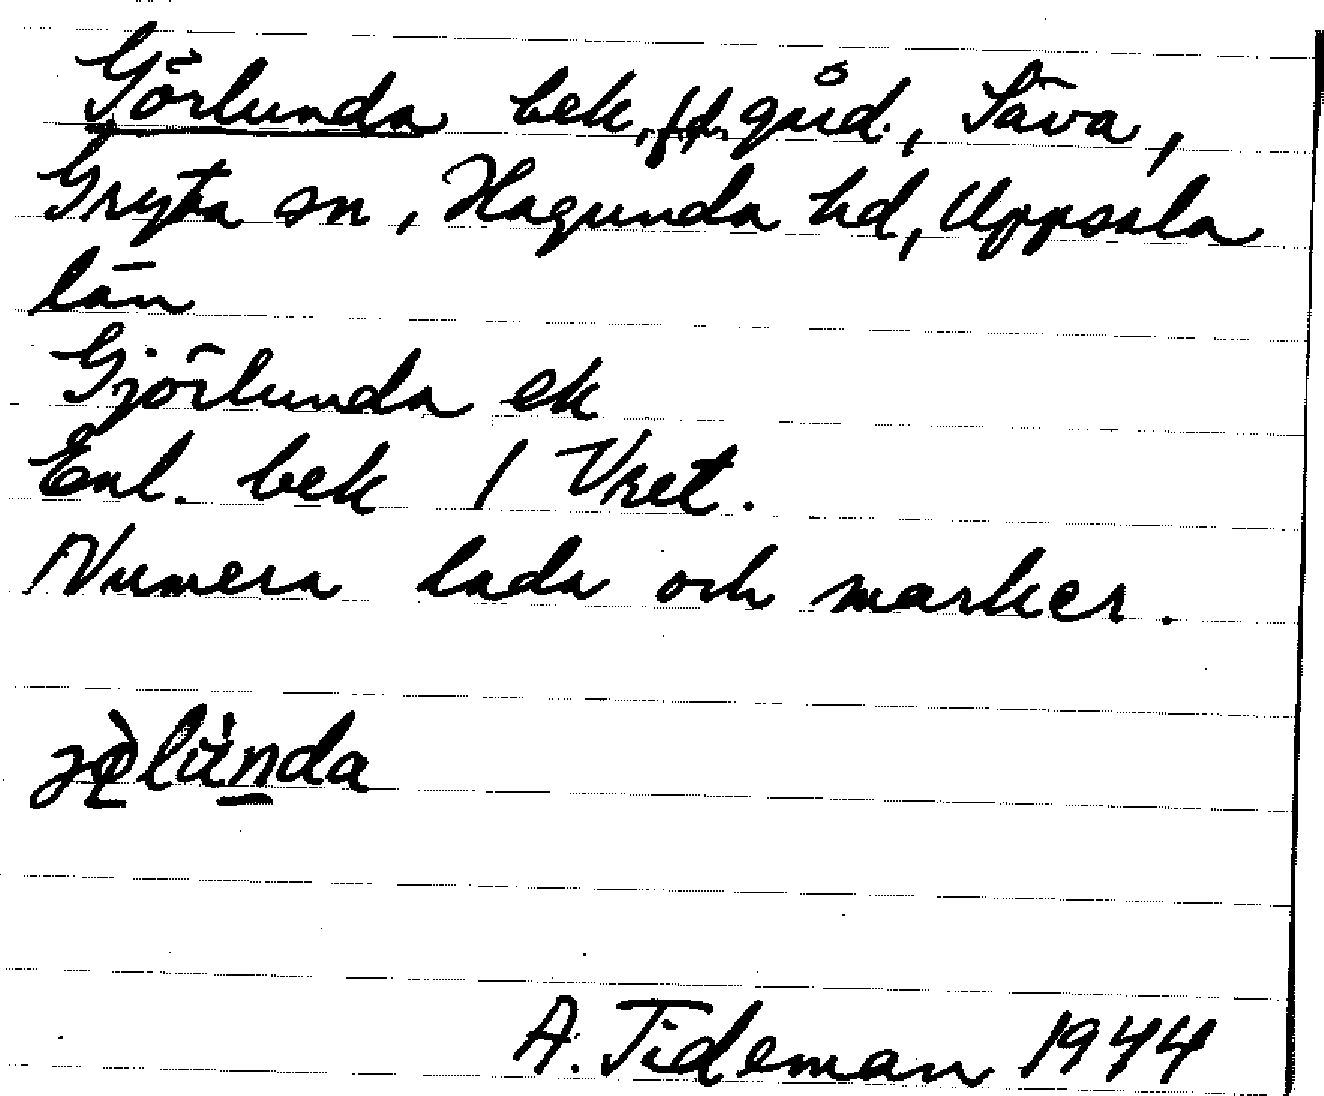 Görlunda bek, fd. gård, Säva,
Gryta sn, Hagunda hd, Uppsala
län
Gjörlunda ek
Enl. bek 1 Vret.
Numera lada och marker.
A. Tideman 1944